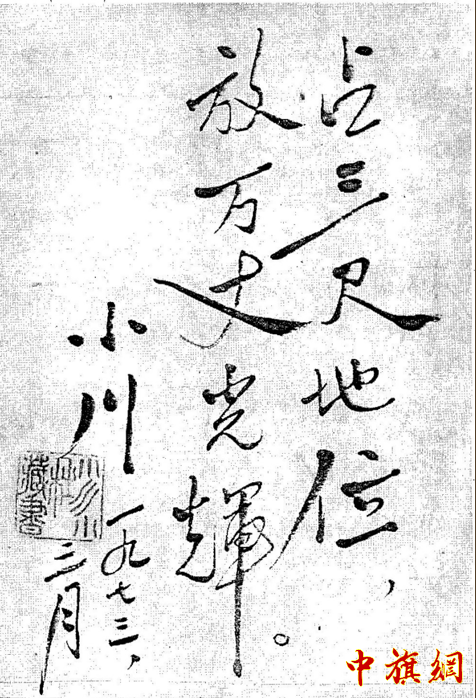 占三尺地位，
放万丈光輝。
小川
一九七三，
三月
藏書
中旗網